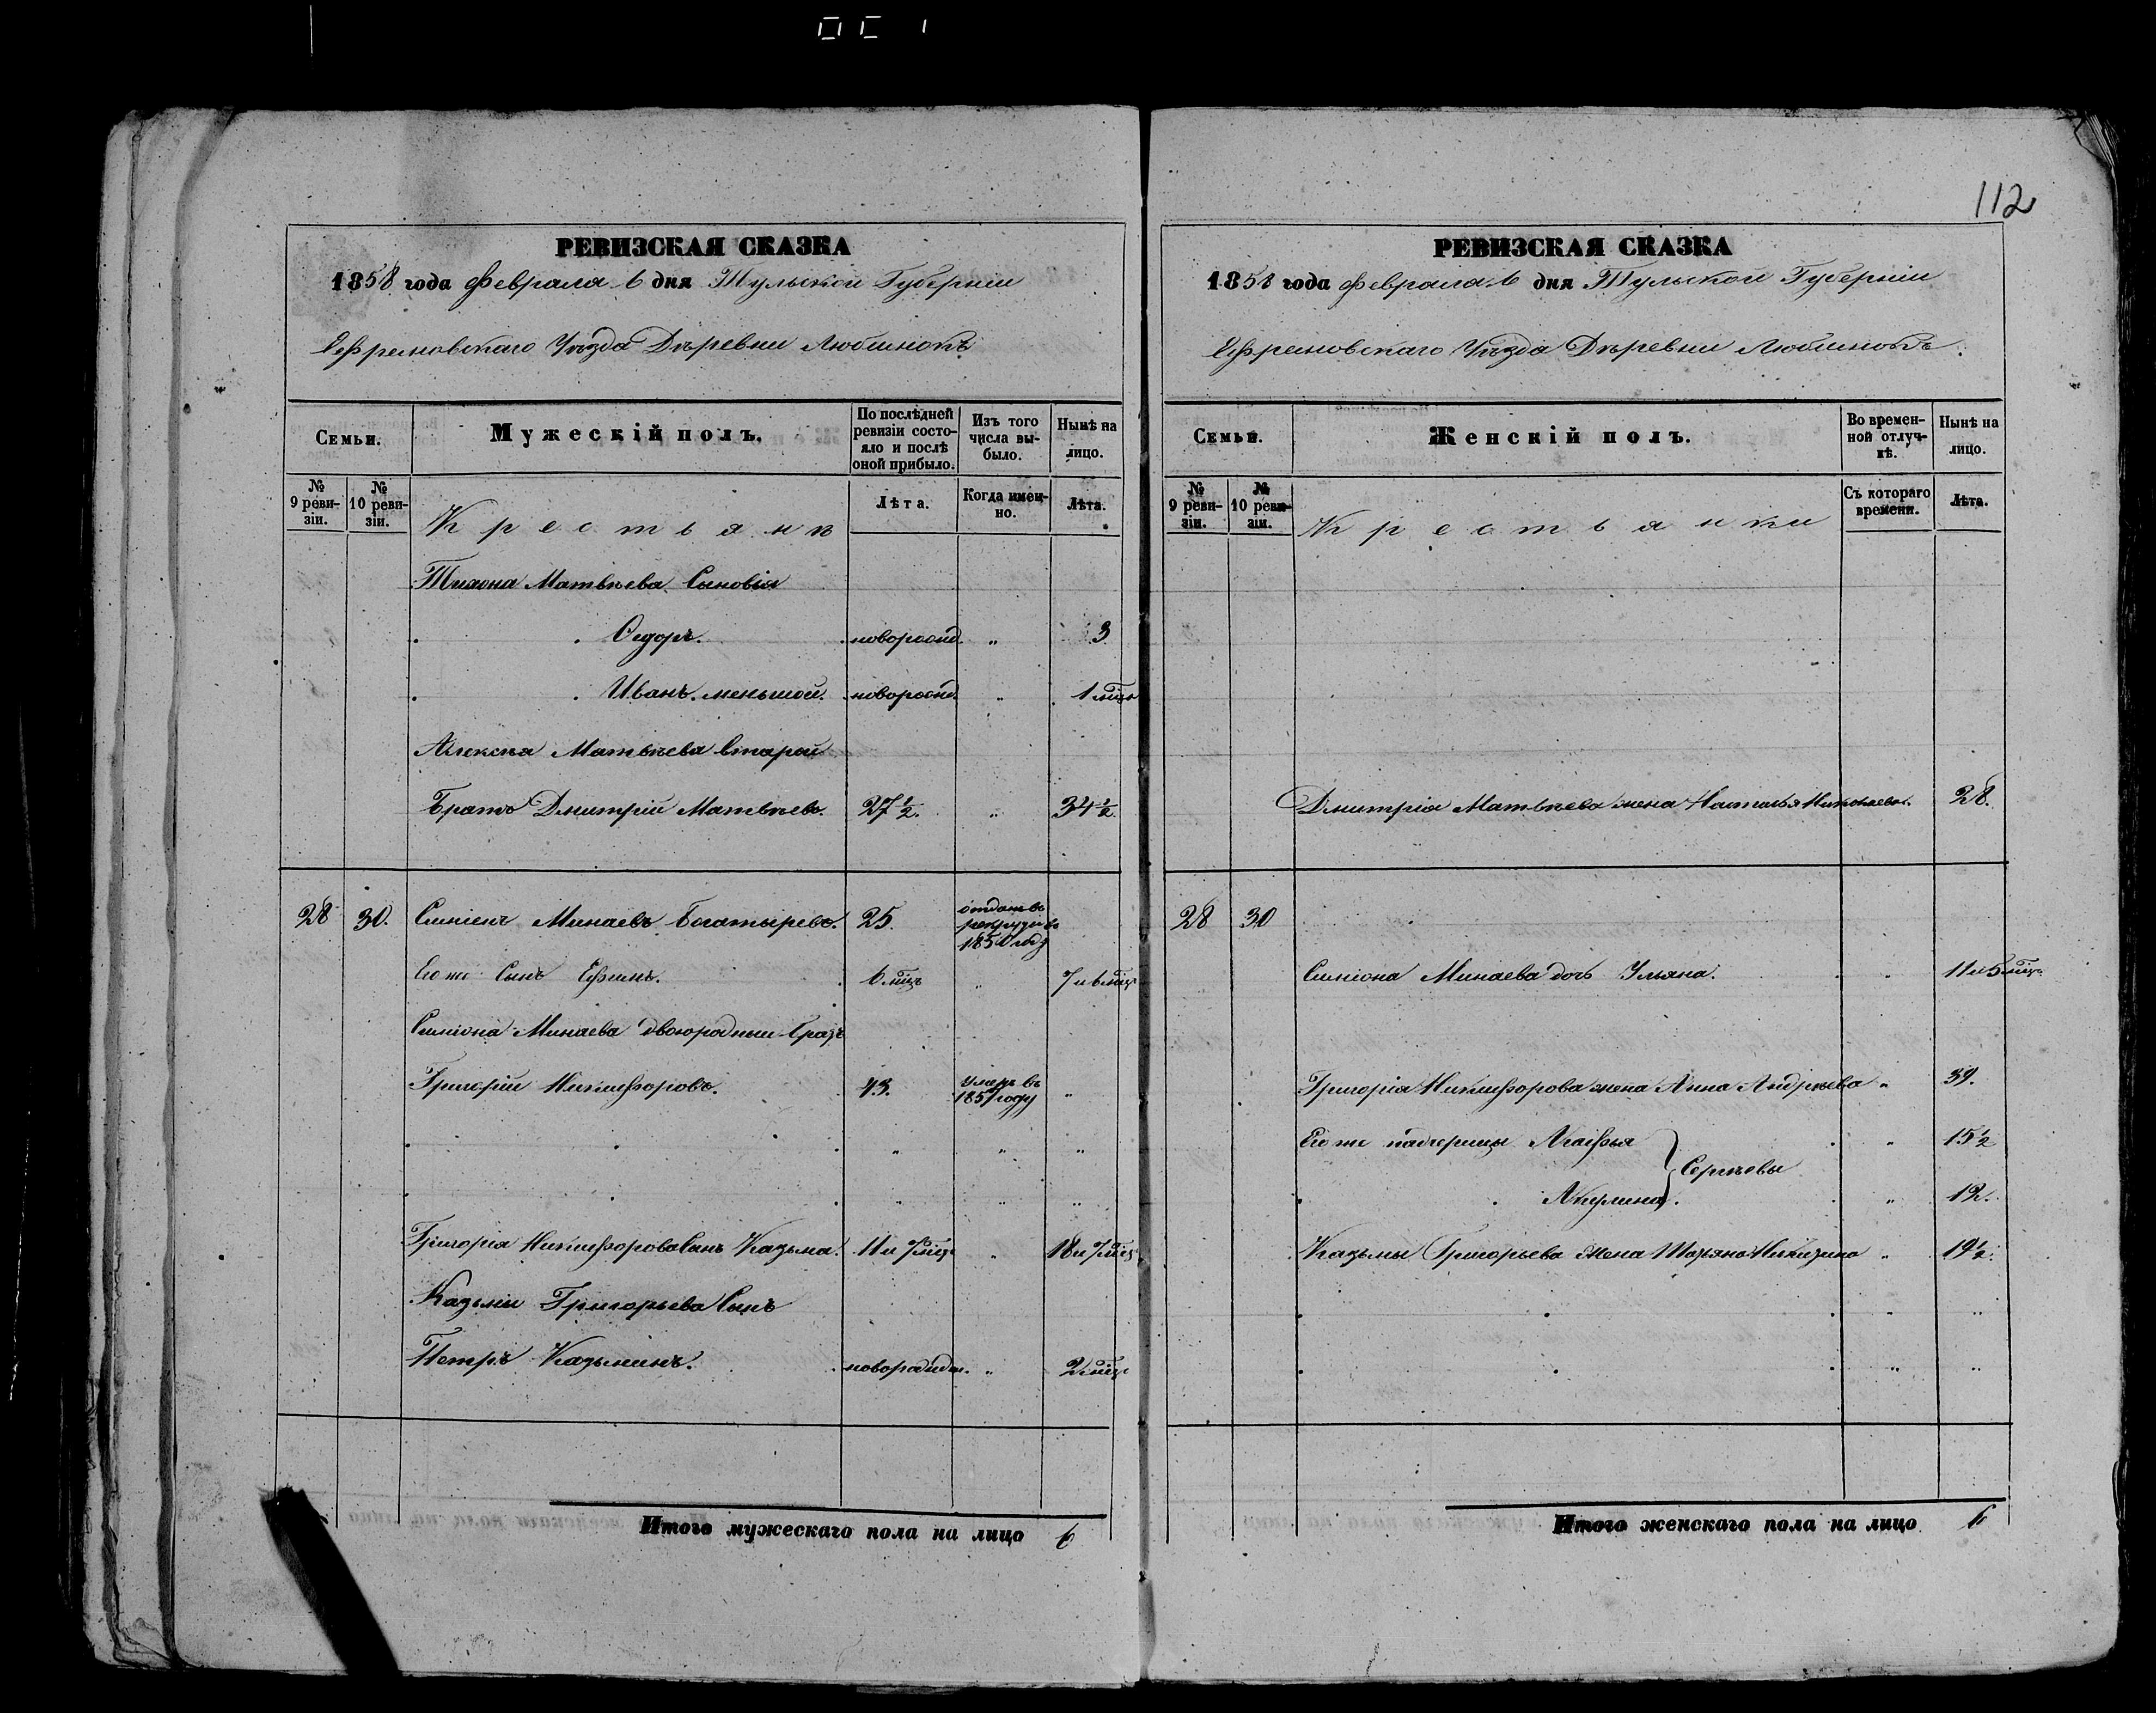 112
РЕВИЗСКАЯ СКАЗКА
1858 года Февраля 6 дня Тульской Губерніи
Ефремовскаго Уѣзда Деревни Любимокъ
Семьи.
Мужескій полъ.
По послѣдней ревизіи состояло и послѣ оной прибыло.
Изъ того числа выбыло.
Нынѣ на лицо.
№ 9 ревизіи.
№ 10 ревизіи.
Крестьянѣ
Лѣта.
Когда именно.
Лѣта.
Тихона Матвѣева Сыновья
Сидоръ. новорожд. " 3
Иванъ меньшой. новорожд. " 1 мѣц.
Алексѣя Матвѣева второй
Братъ Дмитрій Матвѣевъ. 27½. " 34½.
28 30. Симіонъ Минаевъ Богатыревъ. 25. отданъ въ рекруты въ 1850 году
Его же Сынъ Ефимъ. 6 мѣц. " 7 и 6 мѣц.
Симіона Минаева двоюродный братъ
Григорій Никифоровъ. 43. умеръ въ 1857 году "
" " "
" " "
Григорія Никифорова Сынъ Козьма. 11 и 7 мѣц. " 18 и 7 мѣц.
Козьмы Григорьева Сынъ
Петръ Козьминъ. новорожден. " 2 мѣц.
Итого мужескаго пола на лицо 6
РЕВИЗСКАЯ СКАЗКА
1858 года Февраля 6 дня Тульской Губерніи
Ефремовскаго Уѣзда Деревни Любимокъ.
Семьи.
Женскій полъ.
Во временной отлучкѣ.
Нынѣ на лицо.
№ 9 ревизіи.
№ 10 ревизіи.
Крестьянки
Съ котораго времени.
Лѣта.
Дмитрія Матвѣева жена Наталья Николаева. 28.
28 30
Симіона Минаева дочь Ульяна. " 11 и 5 мѣц.
Григорія Никифорова жена Анна Андрѣева " 39.
Его же падчерицы Агафья " 15½
Сергѣевы
Акулина. " 12.
Козьмы Григорьева жена Татьяна Никитина " 19½.
" "
" "
Итого женскаго пола на лицо 6